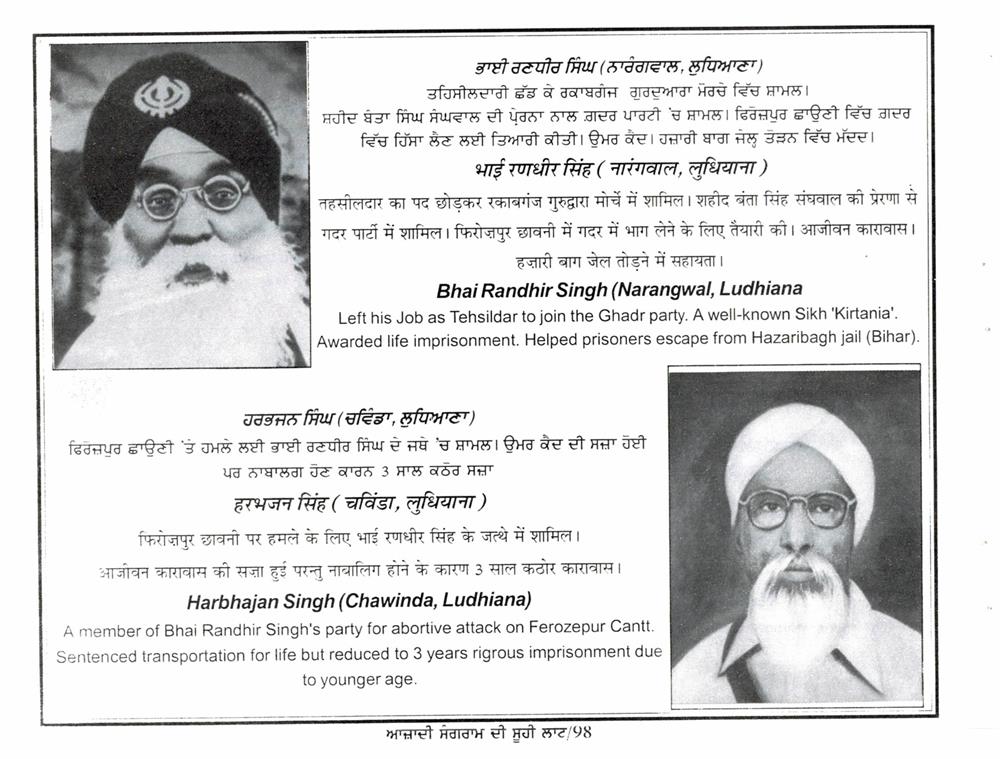 ਭਾਈ ਰਣਧੀਰ ਸਿੰਘ (ਨਾਰੰਗਵਾਲ, ਲੁਧਿਆਣਾ)
ਤਹਿਸੀਲਦਾਰੀ ਛੱਡ ਕੇ ਰਕਾਬਗੰਜ ਗੁਰਦੁਆਰਾ ਮੋਰਚੇ ਵਿੱਚ ਸ਼ਾਮਲ।
ਸ਼ਹੀਦ ਬੰਤਾ ਸਿੰਘ ਸੰਘਵਾਲ ਦੀ ਪ੍ਰੇਰਨਾ ਨਾਲ ਗ਼ਦਰ ਪਾਰਟੀ 'ਚ ਸ਼ਾਮਲ। ਫਿਰੋਜ਼ਪੁਰ ਛਾਉਣੀ ਵਿੱਚ ਗ਼ਦਰ
ਵਿੱਚ ਹਿੱਸਾ ਲੈਣ ਲਈ ਤਿਆਰੀ ਕੀਤੀ। ਉਮਰ ਕੈਦ। ਹਜ਼ਾਰੀ ਬਾਗ ਜੇਲ੍ਹ ਤੋੜਨ ਵਿੱਚ ਮੱਦਦ।
भाई रणधीर सिंह ( नारंगवाल, लुधियाना )
तहसीलदार का पद छोड़कर रकाबगंज गुरुद्वारा मोर्चे में शामिल। शहीद बंता सिंह संघवाल की प्रेरणा से
गदर पार्टी में शामिल। फिरोज़पुर छावनी में गदर में भाग लेने के लिए तैयारी की। आजीवन कारावास।
हज़ारी बाग जेल तोड़ने में सहायता।
Bhai Randhir Singh (Narangwal, Ludhiana
Left his Job as Tehsildar to join the Ghadr party. A well-known Sikh 'Kirtania'.
Awarded life imprisonment. Helped prisoners escape from Hazaribagh jail (Bihar).
ਹਰਭਜਨ ਸਿੰਘ (ਚਵਿੰਡਾ, ਲੁਧਿਆਣਾ)
ਫਿਰੋਜ਼ਪੁਰ ਛਾਉਣੀ 'ਤੇ ਹਮਲੇ ਲਈ ਭਾਈ ਰਣਧੀਰ ਸਿੰਘ ਦੇ ਜਥੇ 'ਚ ਸ਼ਾਮਲ। ਉਮਰ ਕੈਦ ਦੀ ਸਜ਼ਾ ਹੋਈ
ਪਰ ਨਾਬਾਲਗ ਹੋਣ ਕਾਰਨ 3 ਸਾਲ ਕਠੋਰ ਸਜ਼ਾ
हरभजन सिंह ( चविंडा, लुधियाना )
फिरोज़पुर छावनी पर हमले के लिए भाई रणधीर सिंह के जत्थे में शामिल।
आजीवन कारावास की सज़ा हुई परन्तु नाबालिग होने के कारण 3 साल कठोर कारावास।
Harbhajan Singh (Chawinda, Ludhiana)
A member of Bhai Randhir Singh's party for abortive attack on Ferozepur Cantt.
Sentenced transportation for life but reduced to 3 years rigrous imprisonment due
to younger age.
ਆਜ਼ਾਦੀ ਸੰਗਰਾਮ ਦੀ ਸੂਹੀ ਲਾਟ/98